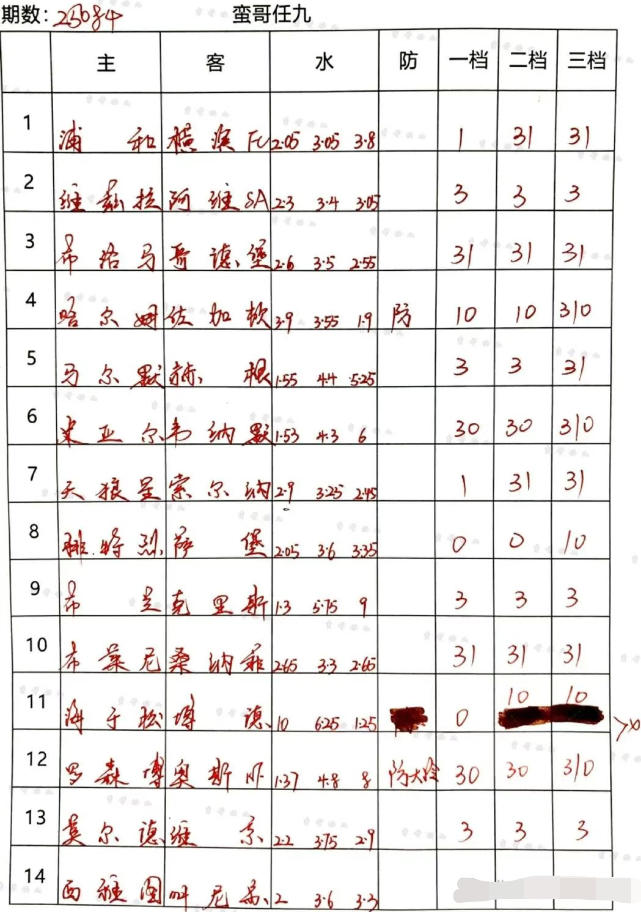 期数:25084 蛮哥任九
主 客 水 防 一档 二档 三档
1 浦和 横滨FC 2.05 3.05 3.8 1 31 31
2 维兹拉 阿维SA 2.3 3.4 3.05 3 3 3
3 布洛马 哥德堡 2.6 3.5 2.55 31 31 31
4 哈尔姆 佐加顿 3.9 3.55 1.9 防 10 10 310
5 马尔默 赫根 1.55 4.4 5.25 3 3 31
6 米亚尔 韦纳默 1.53 4.3 6 30 30 310
7 天狼星 索尔纳 2.9 3.25 2.45 1 31 31
8 特烈 萨堡 2.05 3.6 3.35 0 0 10
9 布兰 克里斯 1.3 5.75 9 3 3 3
10 布莱尼 桑纳菲 2.65 3.3 2.65 31 31 31
11 海于松 博德 10 6.25 1.25 0 10 10
12 罗森博 奥斯 1.37 4.8 8 防大冷 30 30 310
13 莫尔德 维京 2.2 3.75 2.9 3 3 3
14 西雅图 叫尼 2 3.6 3.3